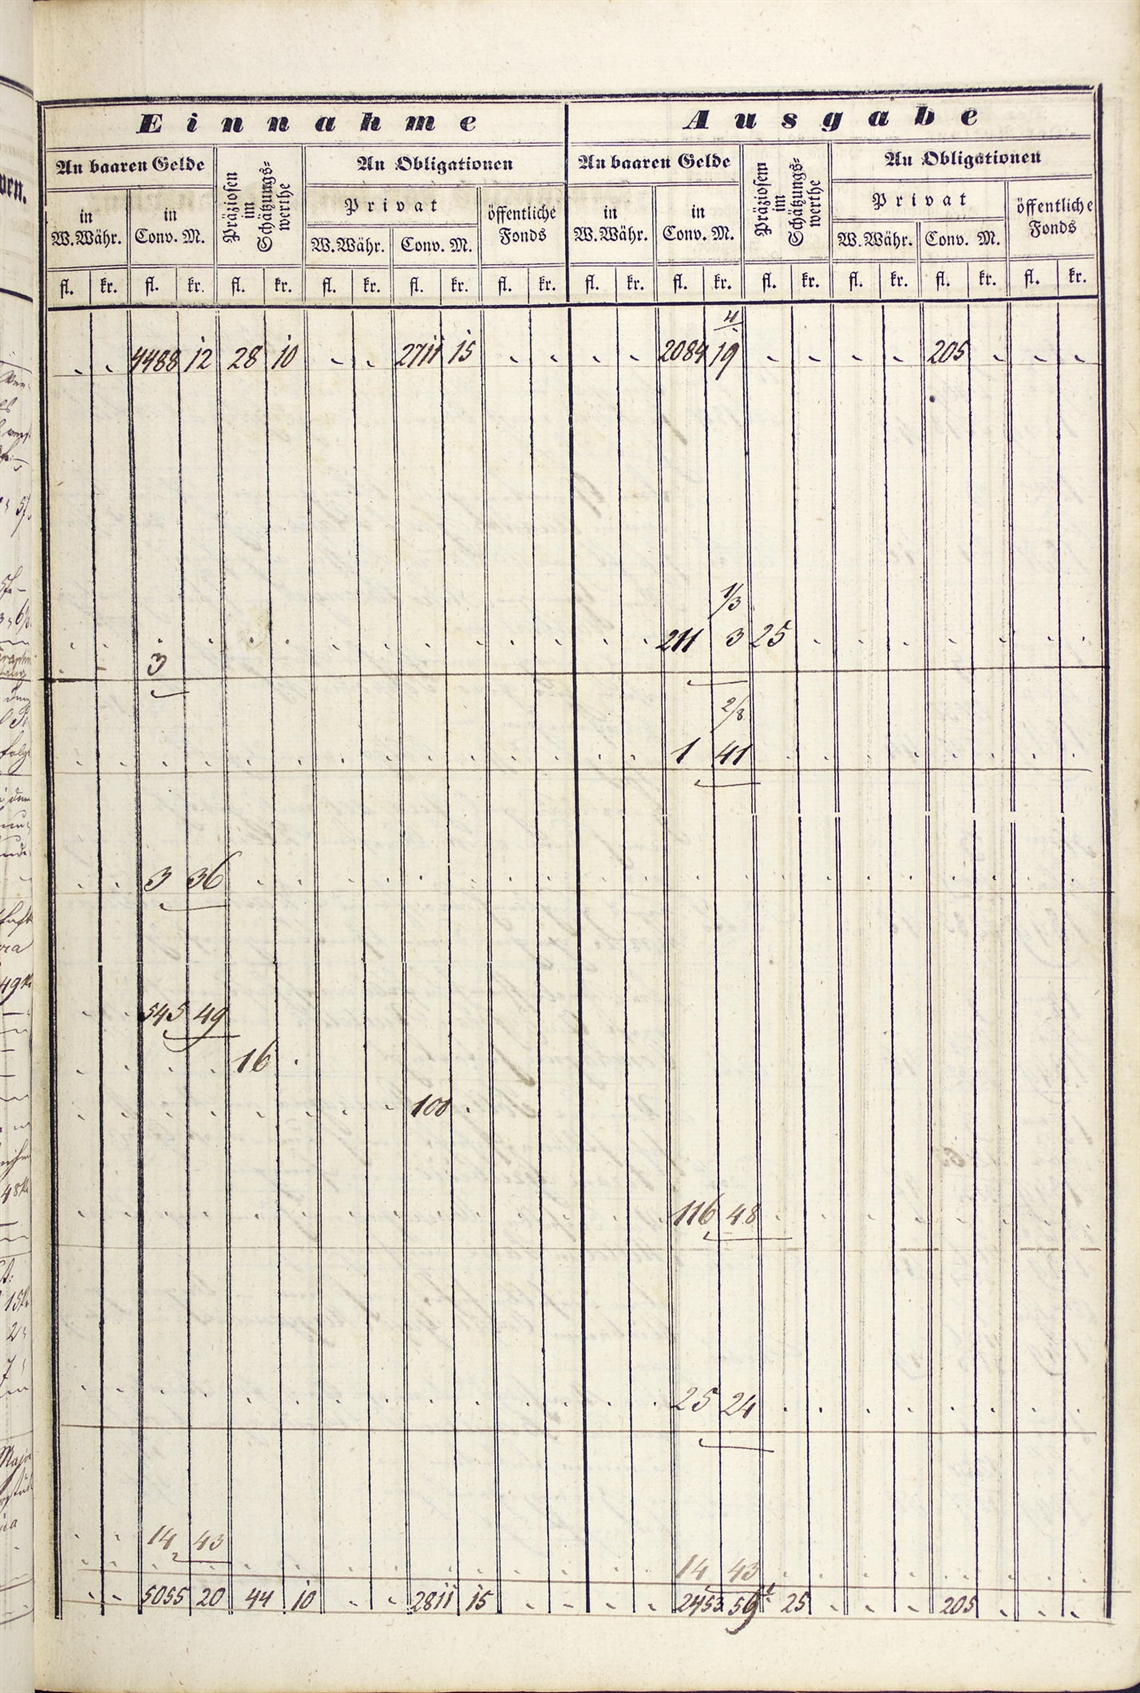 Einnahme Ausgabe
An baaren Gelde Präziosen im Schätzungs-werthe An Obligationen An baaren Gelde Präziosem im Schätzungs-werthe An Obligationen
Privat öffentliche Fonds Privat öffentliche Fonds
in W.Währ. in Conv. M. W.Währ. Conv. M. in W.Währ. in Conv. M. W.Währ. Conv. M.
fl. kr. fl. kr. fl. kr. fl. kr. fl. kr. fl. kr. fl. kr. fl. kr. fl. kr. fl. kr. fl. kr. fl. kr.
4488 12 28 10 2711 15 2084 19 205
1/3
211 3 25
3
2/8
1 41
3 36
545 49
16
100
116 48
25 24
14 43
14 43
5055 20 44 10 2811 15 2453 59 25 205